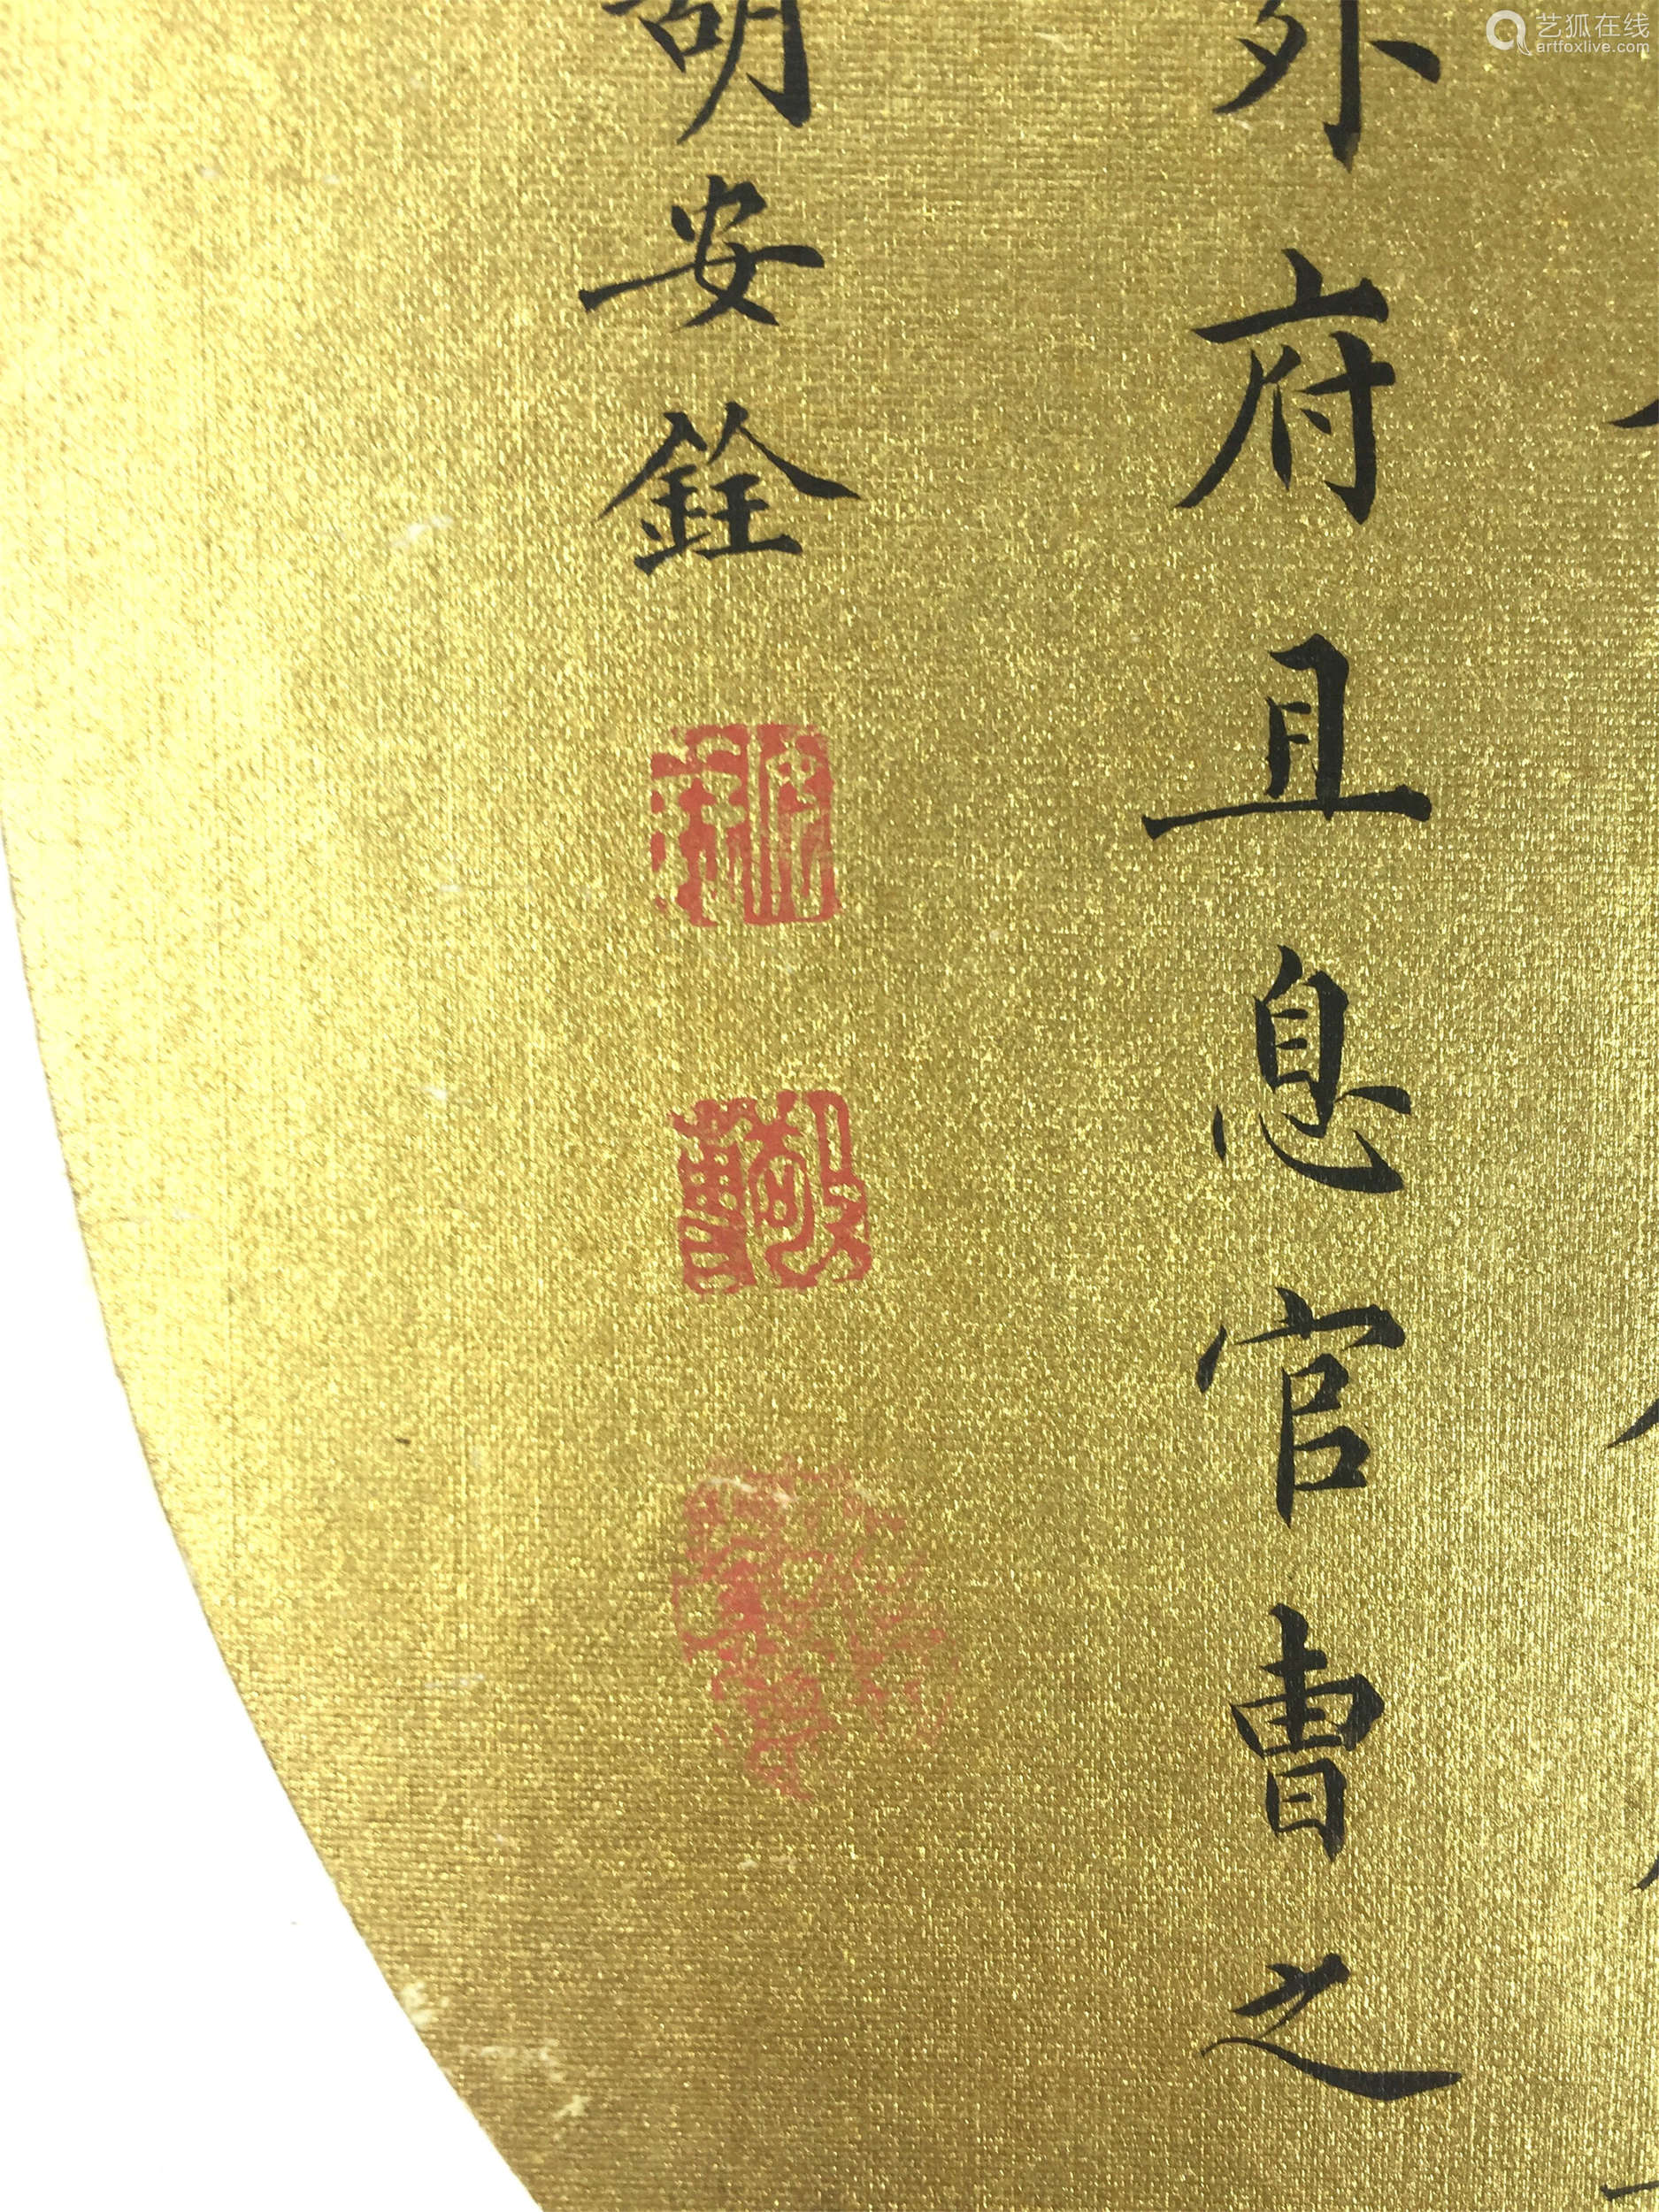 外府且息官曹之
胡安銓
艺狐在线
artfoxlive.com